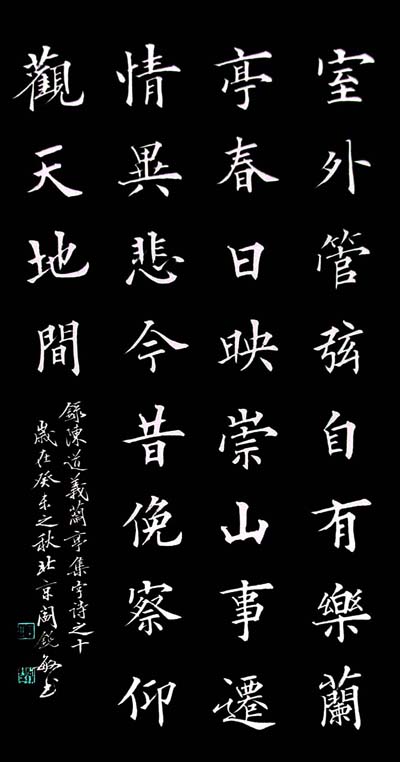 室外管弦自有樂蘭
亭春日映崇山事遷
情異悲今昔俛察仰
觀天地間
錄陳道義蘭亭集字詩之十
歲在癸未之秋北京閻銳敏书